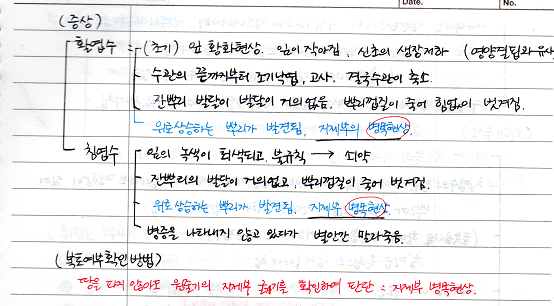 Date. No.
(증상)
활엽수 - (초기) 잎 황화현상. 잎이 작아짐, 신초의 생장저하 (영양결핍과 유사
- 수관의 끝까지부터 조기낙엽, 고사. 결국수관이 축소.
- 잔뿌리 발달이 발달이 거의없음, 뿌리껍질이 죽어 힘없이 벗겨짐.
- 위로상승하는 뿌리가 발견됨, 지제부의 병목현상.
침엽수 - 잎의 녹색이 퇴색되고, 불규칙 → 쇠약
- 잔뿌리의 발달이 거의없고, 뿌리껍질이 죽어 벗겨짐.
- 위로상승하는 뿌리가 발견됨, 지제부 병목현상.
- 병증을 나타내지 않고 있다가 별안간 말라죽음.
(복토여부확인방법)
땅을 파지 않아도 원줄기의 지제부 굵기를 확인하여 판단 : 지제부 병목현상.